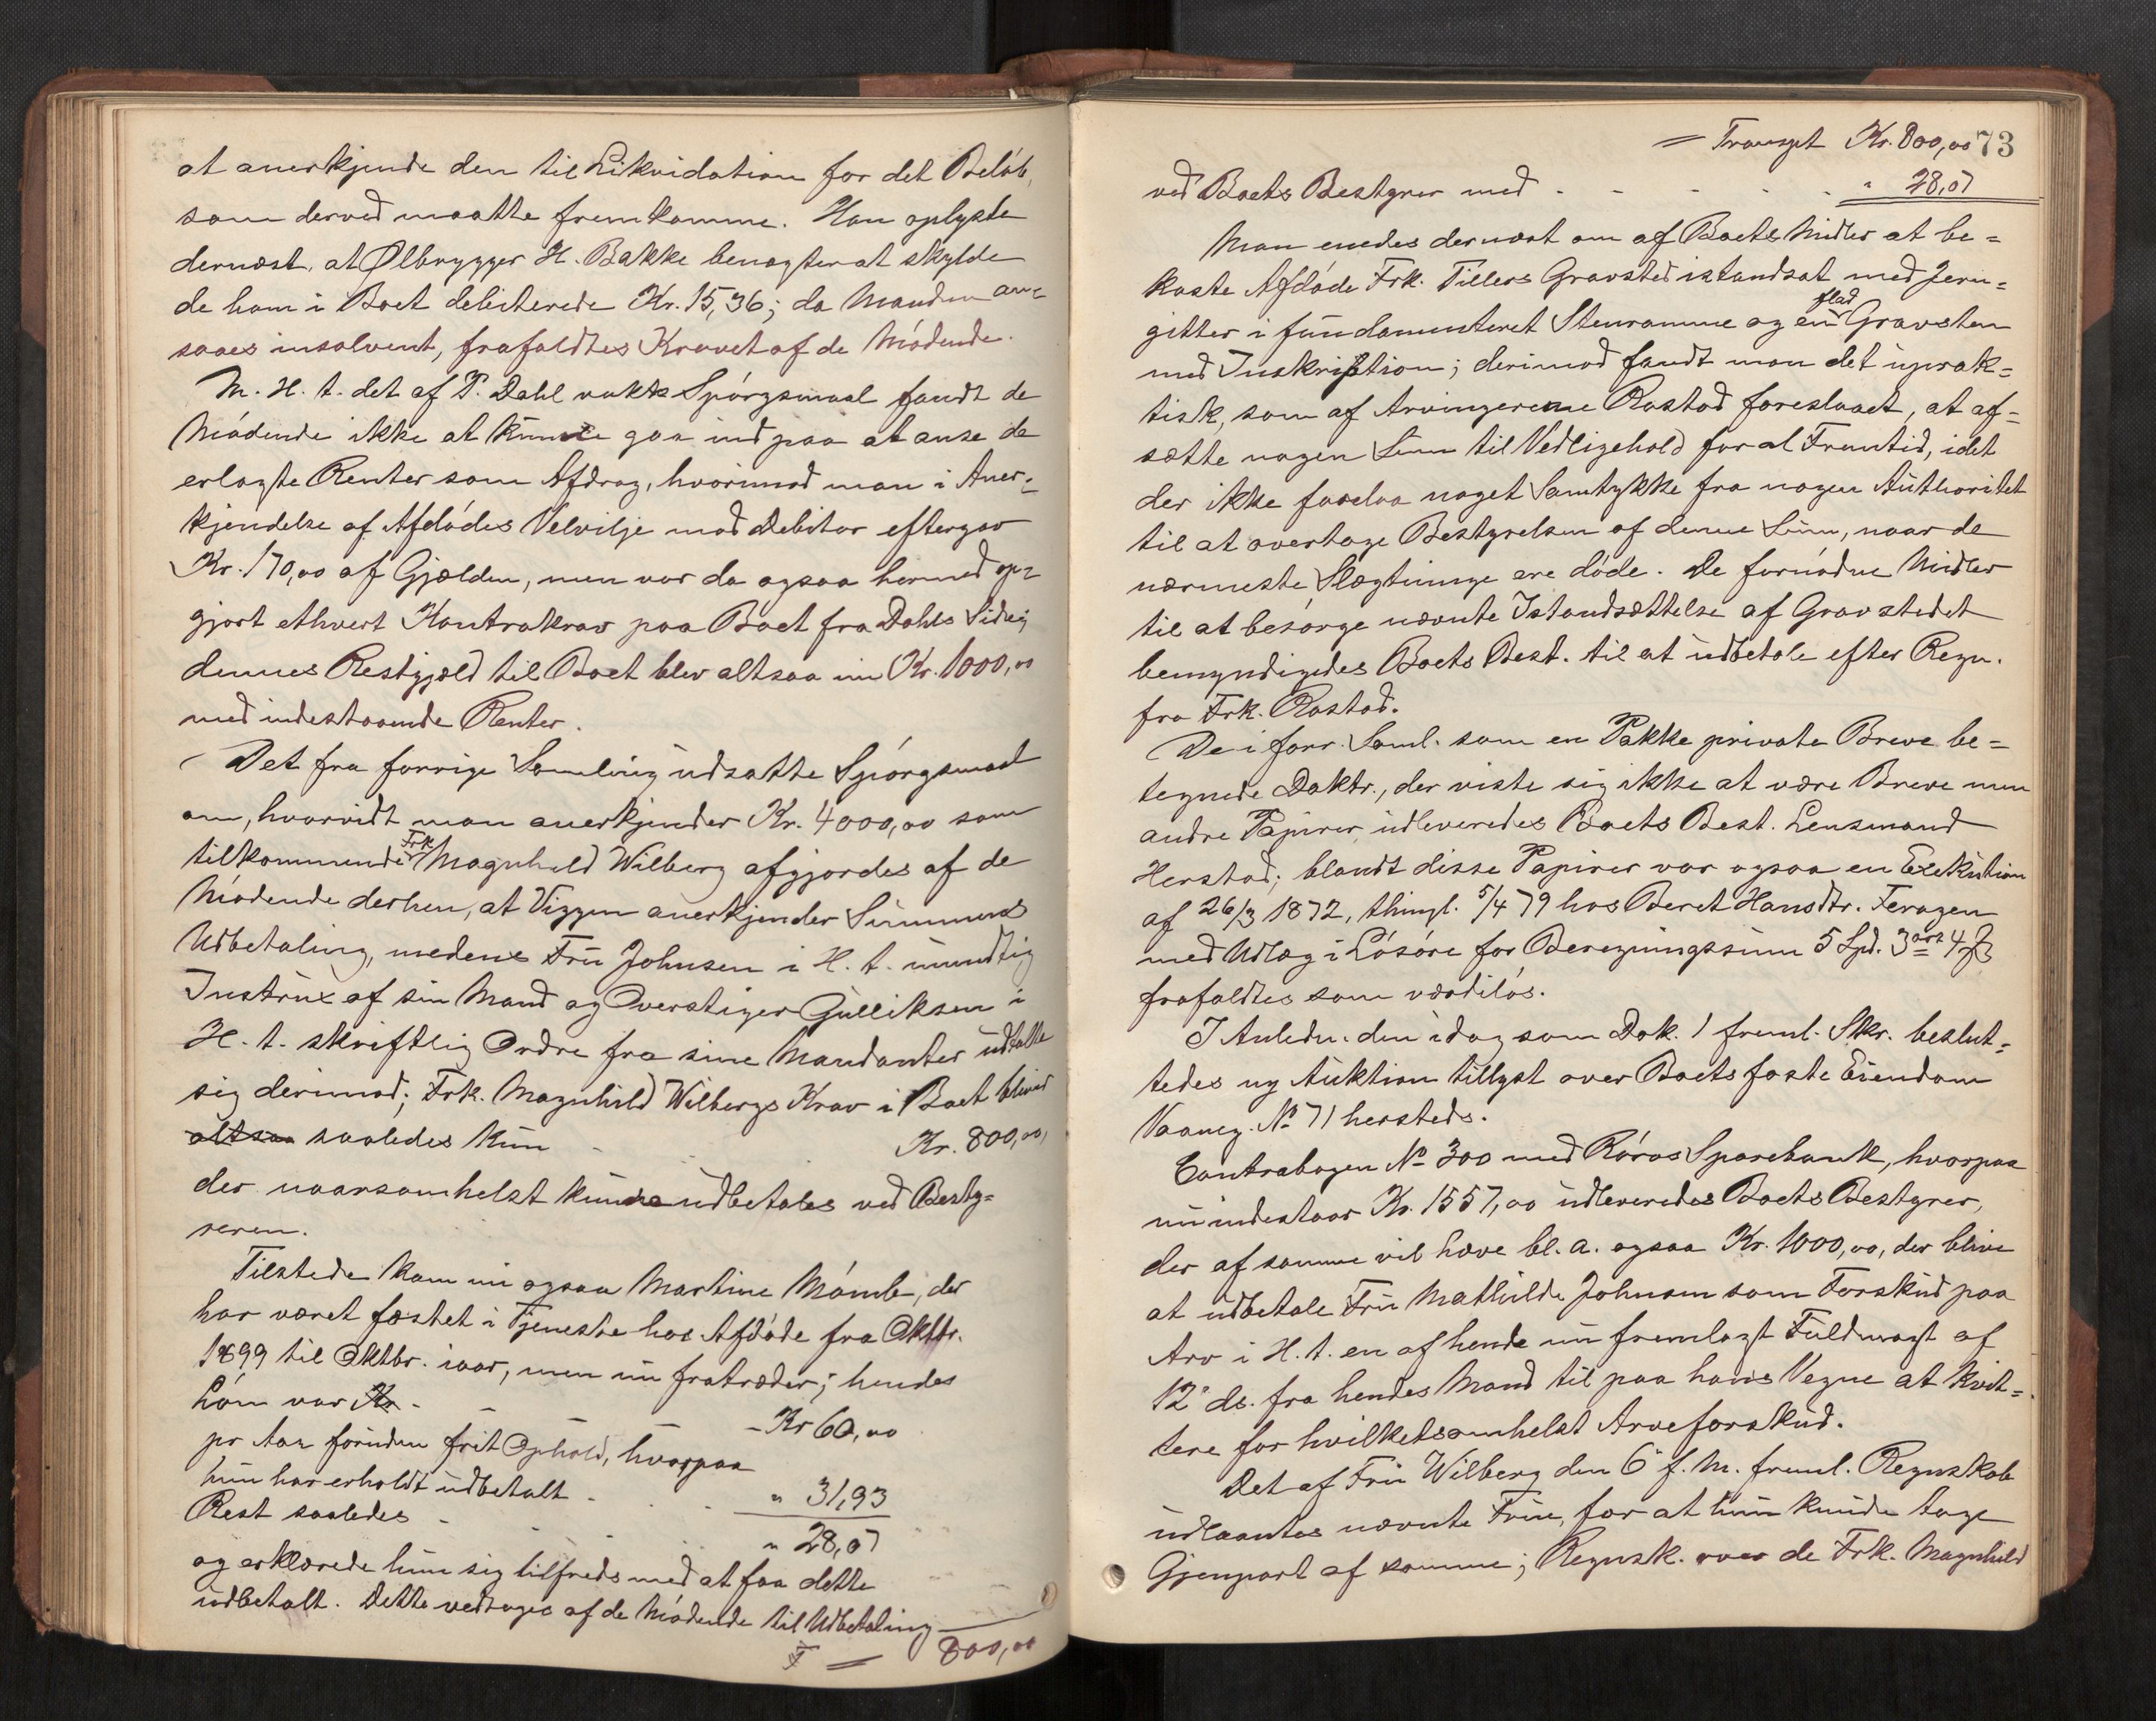 at anerkjende den til Likvidation for det Beløb,
som derved maatte fremkomme. Han oplyste
dernæst, at Ølbrygger H. Bakke benægter at skylde
de ham i Boet debiterede Kr. 15,36; da Manden an=
saaes insolvent, frafaldtes Kravet af de Mødende.
M. H. t. det af P. Dahl vakte Spørgsmaal fandt de
Mødende ikke at kunne gaa ind paa at anse de
erlagte Renter som Afdrag, hvorimod man i Aner=
kjendelse af Afdødes Velvilje mod Debitor eftergav
Kr. 170,00 af Gjælden, men var da ogsaa hermed op=
gjort ethvert Kontrakrav paa Boet fra Dahls Side;
dennes Restgjæld til Boet blev altsaa nu Kr. 1000,00
med indestaaende Renter.
Det fra forrige Samling udsatte Spørgsmaal
om, hvorvidt man anerkjender Kr. 4000,00 som
tilkommende Frk Magnhild Wilberg afgjordes af de
Mødende derhen, at Viggen anerkjender Summens
Udbetaling, medens Fru Johnsen i H. t. mundtlig
Instrux af sin Mand og Overstiger Gulliksen i
H. t. skriftlig Ordre fra sine Mandanter udtalte
sig derimod; Frk. Magnhild Wilbergs Krav i Boet bliver
altsaa saaledes kun - Kr. 800,00,
der naarsomhelst kunde udbetales ved Besty=
reren.
Tilstede kom nu ogsaa Martine Mømb, der
har været fæstet i Tjeneste hos Afdøde fra Oktbr.
1899 til Oktbr. iaar, men nu fratræder; hendes
Løn var Kr - - - Kr 60,00
pr Aar foruden frit Ophold, hvorpaa
hun har erholdt udbetalt - - " 31,93
Rest saaledes - - - " 28,07
og erklærede hun sig tilfreds med at faa dette
udbetalt. Dette vedtages af de Mødende til Udbetaling
T = 800,00
= Transpt Kr. 800,00 73
ved Boets Bestyrer med - - - - - " 28,07
Man enedes dernæst om af Boets Midler at be=
koste Afdøde Frk. Tillers Gravsted istandsat med Jern=
gitter i fundamenteret Stenramme og en flad Gravsten
med Inskription; derimod fandt man det uprak=
tisk, som af Arvingerne Rastad foreslaaet, at af=
sætte nogen Sum til Vedligehold for al Fremtid, idet
der ikke forelaa noget Samtykke fra nogen Authoritet
til at overtage Bestyrelsen af denne Sum, naar de
nærmeste Slægtninge ere døde. De fornødne Midler
til at besørge nævnte Istandsættelse af Gravstedet
bemyndigedes Boets Best. til at udbetale efter Regn.
fra Frk. Rastad.
De i forr. Saml. som en Pakke private Breve be=
tegnede Doktr., der viste sig ikke at være Breve men
andre Papirer udleveredes Boets Best. Lensmand
Herstad; blandt disse Papirer var ogsaa en Exekution
af 26/3 1872, thingl. 5/4 79 hos Beret Hansdtr. Feragen
med Udlæg i Løsøre for Beregningssum 5 Spd. 3 ort 4 ß
frafaldtes som værdiløs.
I Anledn. den idag som Dok. 1 freml. Skr. beslut=
tedes ny Auktion tillyst over Boets faste Eiendom
Vaaneg. No 71 hersteds.
Contrabogen No 300 med Røros Sparebank, hvorpaa
nu indestaar Kr. 1557,00 udleveredes Boets Bestyrer,
der af samme vil hæve bl. a. ogsaa Kr. 1000,00, der blive
at udbetale Fru Mathilde Johnsen som Forskud paa
Arv i H. t. en af hende nu fremlagt Fuldmagt af
12' ds. fra hendes Mand til paa hans Vegne at kvit=
tere for hvilketsomhelst Arveforskud.
Det af Fru Wilberg den 6' f. M. freml. Regnskab
udlaantes nævnte Frue, for at hun kunde tage
Gjenpart af samme; Regnsk. over de Frk. Magnhild